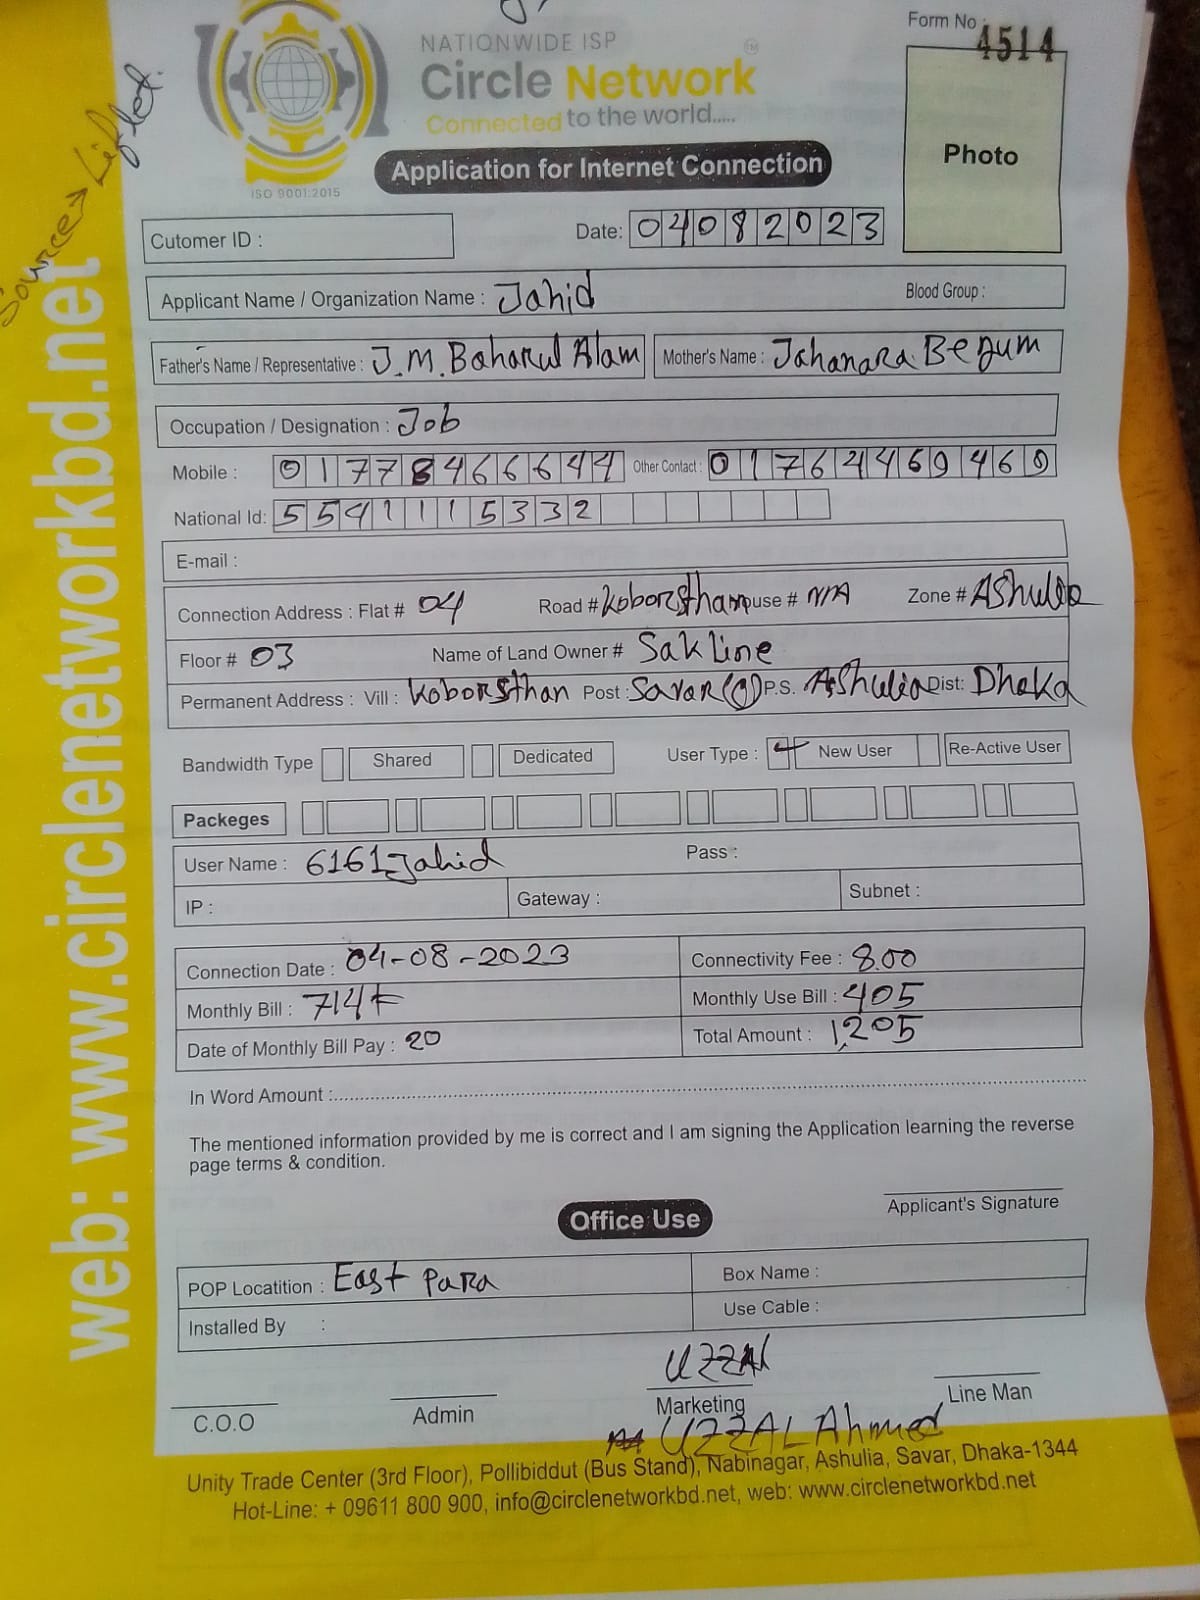 Form No : 4514
NATIONWIDE ISP
Circle Network
Connected to the world.....
ISO 9001:2015
Application for Internet Connection
Photo
Source → Liflet.
web: www.circlenetworkbd.net
Cutomer ID :
Date: 04082023
Applicant Name / Organization Name : Jahid Blood Group :
Father's Name / Representative : J.M. Baharul Alam Mother's Name : Jahanara Begum
Occupation / Designation : Job
Mobile : 01778466644 Other Contact : 01764469460
National Id: 5541115332
E-mail :
Connection Address : Flat # 04 Road # Koborsthan House # N/A Zone # Ashulia
Floor # 03 Name of Land Owner # Sakline
Permanent Address : Vill : Koborsthan Post : Savar P.S. Ashulia Dist: Dhaka
Bandwidth Type Shared Dedicated User Type : New User Re-Active User
Packeges
User Name : 6161_Jahid Pass :
IP : Gateway : Subnet :
Connection Date : 04-08-2023 Connectivity Fee : 800
Monthly Bill : 714 Monthly Use Bill : 405
Date of Monthly Bill Pay : 20 Total Amount : 1,205
In Word Amount :
The mentioned information provided by me is correct and I am signing the Application learning the reverse
page terms & condition.
Applicant's Signature
Office Use
POP Locatition : East Para Box Name :
Installed By : Use Cable :
UZZAL
C.O.O Admin Marketing Line Man
UZZAL Ahmed
Unity Trade Center (3rd Floor), Pollibiddut (Bus Stand), Nabinagar, Ashulia, Savar, Dhaka-1344
Hot-Line: + 09611 800 900, info@circlenetworkbd.net, web: www.circlenetworkbd.net